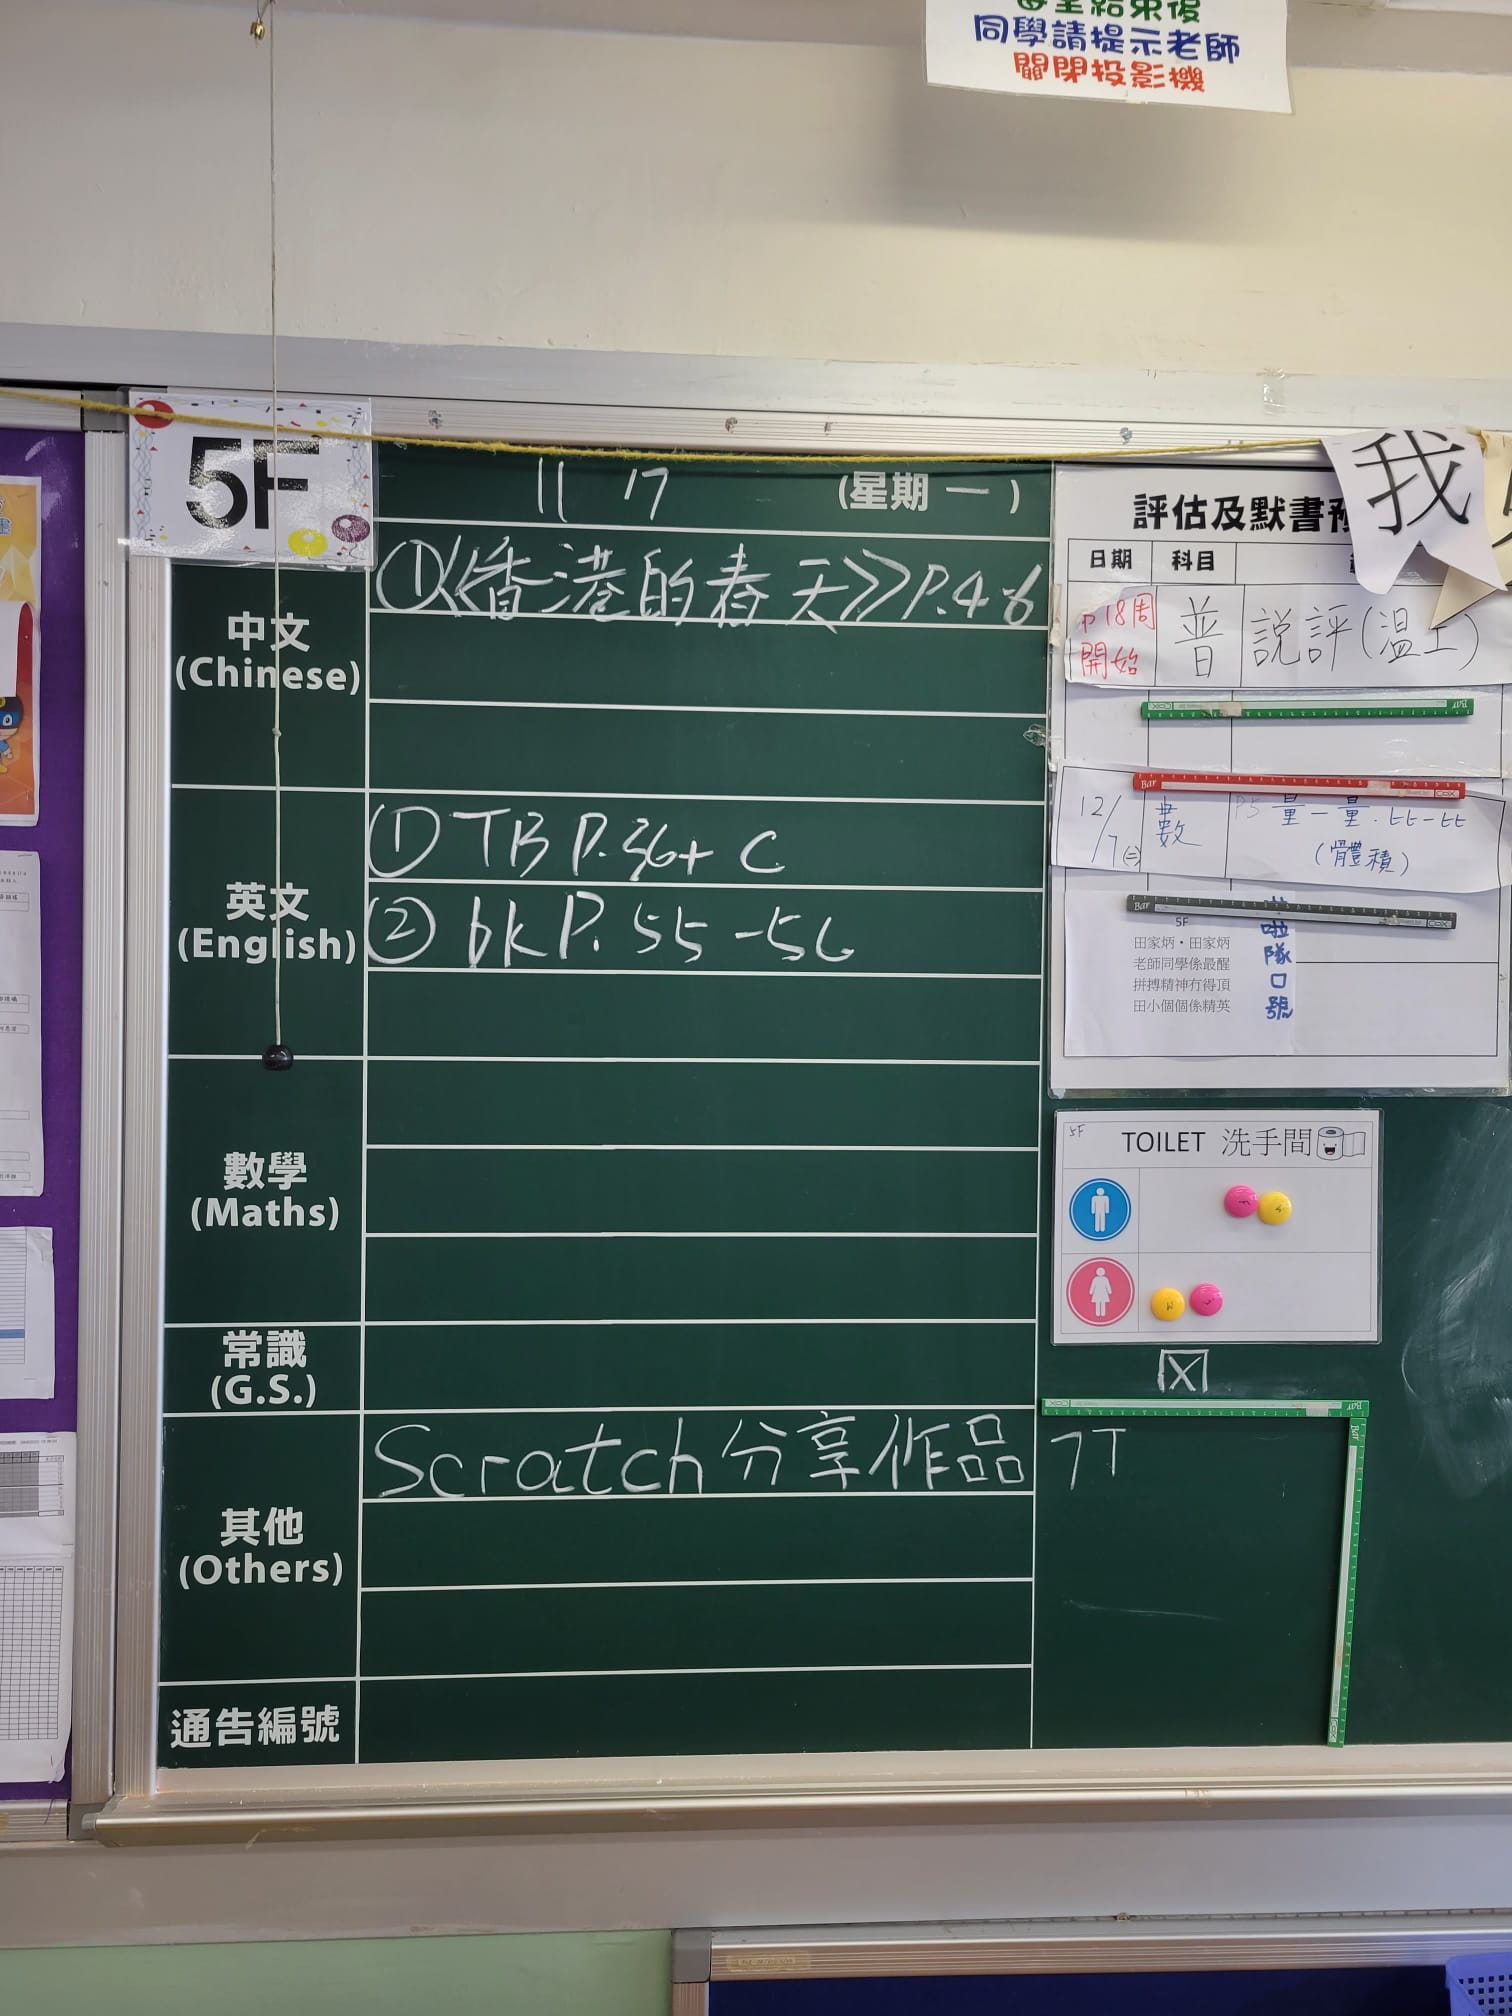 同學請提示老師
關閉投影機
5F
11 17 (星期一)
中文
(Chinese)
①《香港的春天》P.4-6
英文
(English)
① TB P.36+ C
② bk P. 55-56
數學
(Maths)
常識
(G.S.)
其他
(Others)
Scratch分享作品 7T
通告編號
我
評估及默書
日期 科目
18周
開始
普
說評(溫工)
12/7(二)
數
P5 量一量.比一比
(體積)
5F
田家炳・田家炳
老師同學係最醒
拼搏精神冇得頂
田小個個係精英
啦隊口號
5F
TOILET 洗手間
X